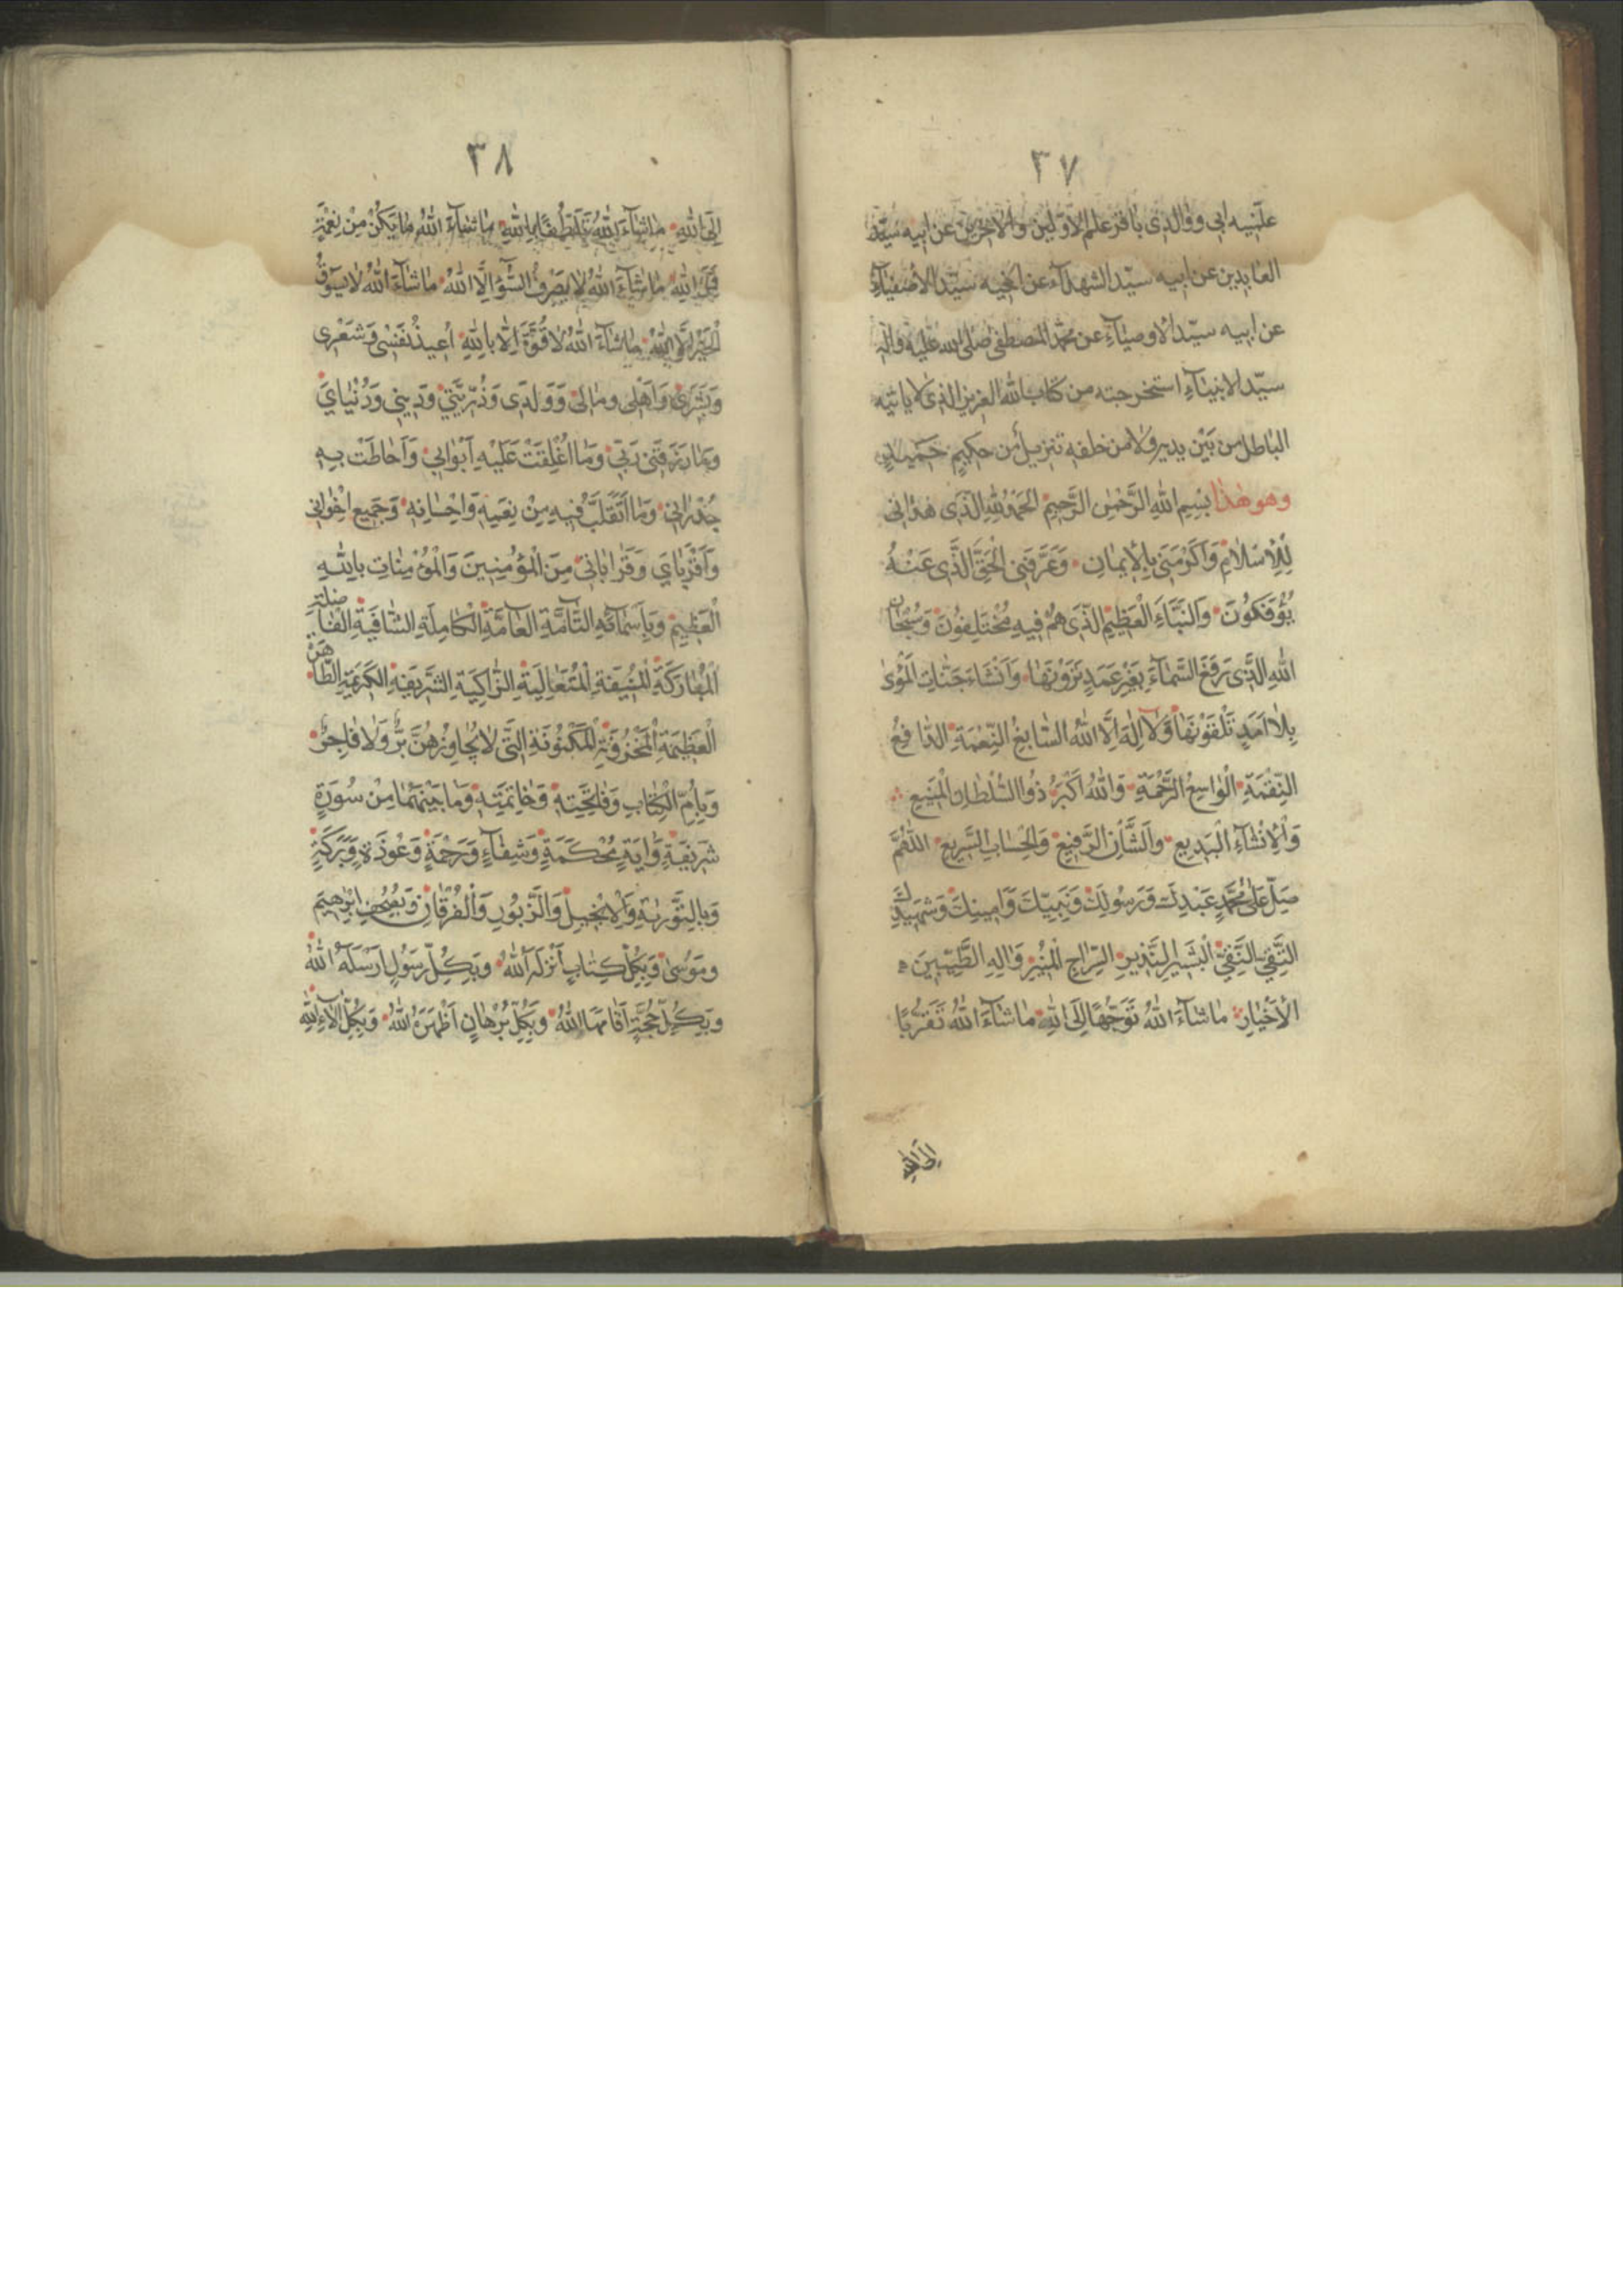 ٣٧
علّنيه ابى ووالدى باقر علم الاوّلين والاخرين عن ابيه سيّد
العابدين عن ابيه سيّد الشهدآء عن اخيه سيّد الاصفيآء
عن ابيه سيّد الاوصيآء عن محمّد المصطفى صلى الله عليه واله
سيّد الانبيآء استخرجته من كتاب الله العزيز الذى لا ياتيه
الباطل من بين يديه ولا من خلفه تنزيل من حكيم حميد
وهو هذا بسم الله الرّحمن الرّحيم الحمد لله الّذى هدانى
للاسلام واكرمنى بالايمان وعرّفنى الحقّ الّذى عنه
يؤفكون والنّباء العظيم الّذى هم فيه مختلفون وسبحان
الله الّذى رفع السّمآء بغير عمد ترونها وانشاء جنّات الماوى
بلا امد تلقونها ولا اله الّا الله السّابغ النّعمة الدّافع
النّقمة الواسع الرّحمة والله اكبر ذوا السّلطان المنيع
والانشآء البديع والشّأن الرّفيع والحساب السّريع اللّهمّ
صلّ على محمّد عبدك ورسولك ونبيّك وامينك وشهيدك
التّقيّ النّقيّ البشير النّذير السّراج المنير واله الطّيّبين
الاخيار ما شآء الله توجّها الى الله ما شآء الله تقرّبا
الى الله
٣٨
الى الله ما شآء الله تلطّفا بالله ما شآء الله ما يكن من نعمة
فمن الله ما شآء الله لا يصرف السّوء الّا الله ما شآء الله لا يسوق
الخير الّا الله ما شآء الله لا قوّة الّا بالله اعيذ نفسى وشعرى
وبشرى واهلى ومالى وولدى وذرّيّتى ودينى ودنياي
وما رزقنى ربّى وما اغلقت عليه ابوابى واحاطت به
جدرانى وما اتقلّب فيه من نعمه واحسانه وجميع اخوانى
واقربآي وقراباتى من المؤمنين والمؤمنات بالله
العظيم وباسمآئه التّآمّة العآمّة الكاملة الشّافية الفاضلة
المباركة المنيفة المتعالية الزّاكية الشّريفة الكريمة الطّاهرة
العظيمة المخزونة المكنونة التّى لا يجاوزهنّ برّ ولا فاجر
وبامّ الكتاب وفاتحته وخاتمته وما بينهما من سورة
شريفة واية محكمة وشفآء ورحمة وعوذة وبركة
وبالتّورية والانجيل والزّبور والفرقان وبصحف ابرهيم
وموسى وبكلّ كتاب انزله الله وبكلّ رسول ارسله الله
وبكلّ حجّة اقامها الله وبكلّ برهان اظهره الله وبكلّ الآء الله